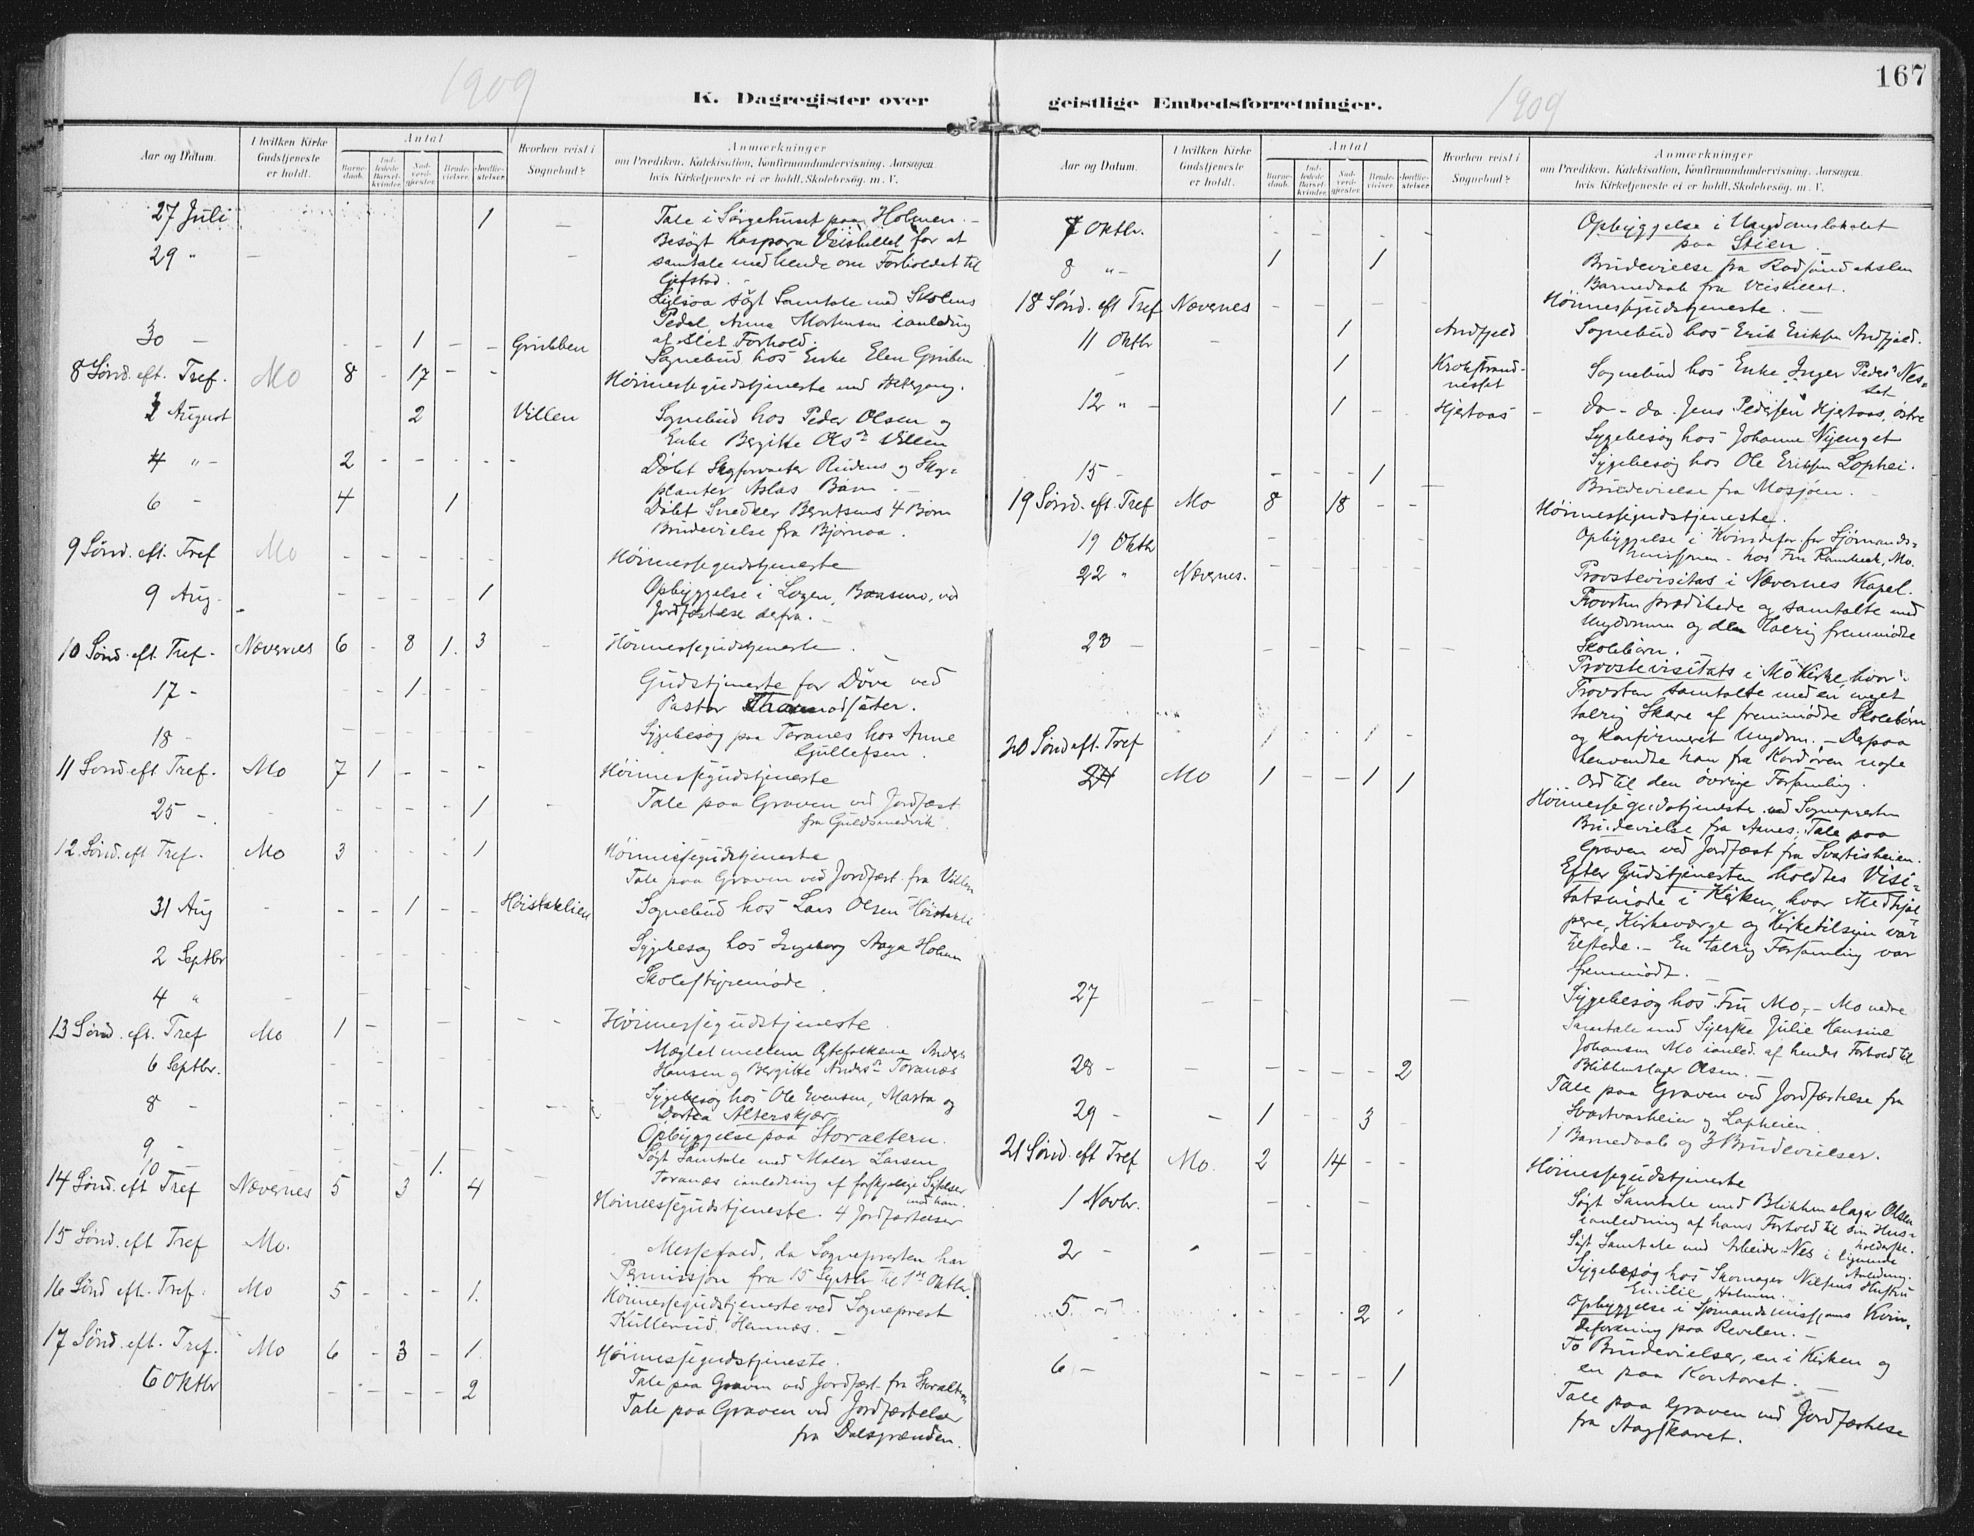 167
1909
K. Dagregister over
geistlige Embedsforretninger.
1909
Aar og Datum.
I hvilken Kirke
Gudstjeneste
er holdt.
Antal
Barne-
daab.
Ind-
ledede
Barsel-
kvinder.
Nad-
verd-
gjester.
Brude-
vielser.
Jordfæ-
stelser.
Hvorhen reist i
Sognebud?
Anmærkninger
om Prædiken, Katekisation, Konfirmandundervisning. Aarsagen,
hvis Kirketjeneste ei er holdt. Skolebesøg. m. V.
27 Juli - 1 - Tale i Sørgehuset paa Holmen. -
29 " - Besøgt Kaspara for at
samtale med hende om Forholdet til
Gifstad. -
søgt Samtale med Skolens
Pedel, Anna Mortensen i anledning
af Forhold.
30 - 1 - - Grubben Sognebud hos Enke Elen Gruben
8 Sønd. eft. Tref. Mo 8 - 17 - - Høimessegudstjeneste med Altergang.
2 August 2 Villen Sognebud hos Peder Olsen og
Enke Bergitte Olsn Villen
4 " - 2 - - - - Døbt Skogforvalter Rudens og Skog-
planter Aslas Børn. -
6 - 4 1 Døbt Snedker Berntsens 4 Børn
Brudevielse fra Bjørnaa.
9 Sønd. eft. Tref Mo - - - - - Høimessegudstjeneste
9 Aug. - - - - 1 Opbyggelse i Logen, Baasmo, ved
Jordfæstelse derfra. -
10 Sønd. eft. Tref. Nævernes 6 - 8 1. 3 - Høimessegudstjeneste.
17 - - - 1 Gudstjeneste for Døve ved
Pastor
18 - Sygebesøg paa Toranes hos Anne
Gullefsen.
11 Sønd eft Tref. Mo 7 1 - - - Høimessegudstjeneste
25 - - - - - 1 - Tale paa Graven ved Jordfæst
fra Guldsmedvik.
12 Sønd. eft Tref. Mo 3 - - - 1 Høimessegudstjeneste
Tale paa Graven ved Jordfæst. fra Villen
31 Aug - - - 1 - - Høistaklien Sognebud hos Lars Olsen
2 Septbr - - - - - Sygebesøg hos Ingeborg Aaga Holmen
4 " - - - - - - Skolestyremøde.
13 Sønd. eft. Tref Mo 1 - - - - Høimessegudstjeneste.
6 Septbr. Mæglet mellem Ægtefolkene Anders
Hansen og Bergitte Andersn Toranæs
8 - - - - - - Sygebesøg hos Ole Evensen, Marta og
Dortea Alterskjær
9 - Opbyggelse paa Storaltern.
10 1. Søgt Samtale med Maler Larsen
Toranæs i anledning af forskjellige Rygter
14 Sønd. eft Tref Nævernes 5 3 4 Høimessegudstjeneste. 4 Jordfæstelser
15 Sønd. eft Tref Mo. Messefald, da Sognepresten har
Permission fra 15 Septbr til 1st Oktbr.
16 Sønd eft. Tref. Mo 5 - - - 1. Høimessegudstjeneste ved Sogneprest
Kullerud, Hemnæs. -
17 Sønd. eft. Tref. Mo 6 - 3 - 1. Høimessegudstjeneste.
Tale paa Graven ved Jordfæst. fra Storaltern
6 Oktbr - - - - 2 Tale paa Graven ved Jordfæstelser
fra Dalsgrænden.
Aar og Datum.
I hvilken Kirke
Gudstjeneste
er holdt.
Antal
Barne-
daab.
Ind-
ledede
Barsel-
kvinder.
Nad-
verd-
gjester.
Brude-
vielser.
Jordfæ-
stelser.
Hvorhen reist i
Sognebud?
Anmærkninger
om Prædiken, Katekisation, Konfirmandundervisning. Aarsagen,
hvis Kirketjeneste ei er holdt. Skolebesøg. m. V.
7 Oktbr. - - - - - Opbyggelse i Ungdomslokalet
paa Stien.
8 " - 1 1 Brudevielse fra
Barnedaab fra
18 Sønd. eft Tref Nævernes - - - - - Høimessegudstjeneste. -
11 Oktbr - 1 Andfjeld Sognebud hos Erik Eriksen Andfjeld.
- 1 Krokstrand-
nesset Sognebud hos Enke Inger Peders Nes-
set
12 " - 1 - - Hjertaas - do - do. Jens Pedersen Hjertaas, østre
Sygebesøg hos Johanne Nyenget
Sygebesøg hos Ole Eriksen
15 - - - - 1 - Brudevielse fra Mosjøen. -
19 Sønd. eft. Tref Mo 8 18 - - Høimessegudstjeneste.
19 Oktbr - Opbyggelse i Kvindefor. for Sjømands-
missionen hos Fru Rambeck, Mo.
22 " Nævernes. - - - - - Provstevisitas i Nævernes Kapel.
Provsten prædikede og samtalte med
Ungdommen og den talrig fremmødte
Skolebørn.
23 - - - - - - Provstevisitats i Mo Kirke, hvor
Provsten samtalte med en meget
talrig Skare af fremmødte Skolebørn
og Konfirmeret Ungdom. - Derpaa
henvendte han fra Kordøren nogle
Ord til den øvrige Forsamling.
20 Sønd eft. Tref
24 Mo 1 - - 1 1 Høimessegudstjeneste ved Sognepresten
Brudevielse fra Aanes; Tale paa
Graven ved Jordfæst fra Svartisheien.
Efter Gudstjenesten holdtes Visi-
tatsmøde i Kirken, hvor Medhjæl-
pere, Kirkeværge og Kirketilsyn var
tilstede. - En talrig Forsamling var
fremmødt.
27 - - - - - - - Sygebesøg hos Fru Mo, - Mo nedre
Samtale med Syerske Julie Hansine
Johansen Mo i anled. af hendes Forhold til
Blikkenslager Olsen. -
28 - - - - - 2 Tale paa Graven ved Jordfæstelse fra
Svartvasheien og Lapheien.
29 - - 1 - 3 1 Barnedaab og 3 Brudevielser.
21 Sønd. eft Tref Mo. 2 14 - - Høimessegudstjeneste
1 Novbr. - - Søgt Samtale med Blikkenslager Olsen
i anledning af hans Forhold til sin Hus-
holderske.
2 - - - Søgt Samtale med Arbeider Nes i lignende
Anledning.
Sygebesøg hos Skomager Nilsens Hustru
Emilie Holmen.
5. - 2 Opbyggelse i Sjømandsmissjons Kvin-
deforening paa Revelen. -
To Brudevielser, en i Kirken og
en paa Kontoret. -
6 - - - - - 1 Tale paa Graven ved Jordfæstelse
fra Aagskaret.